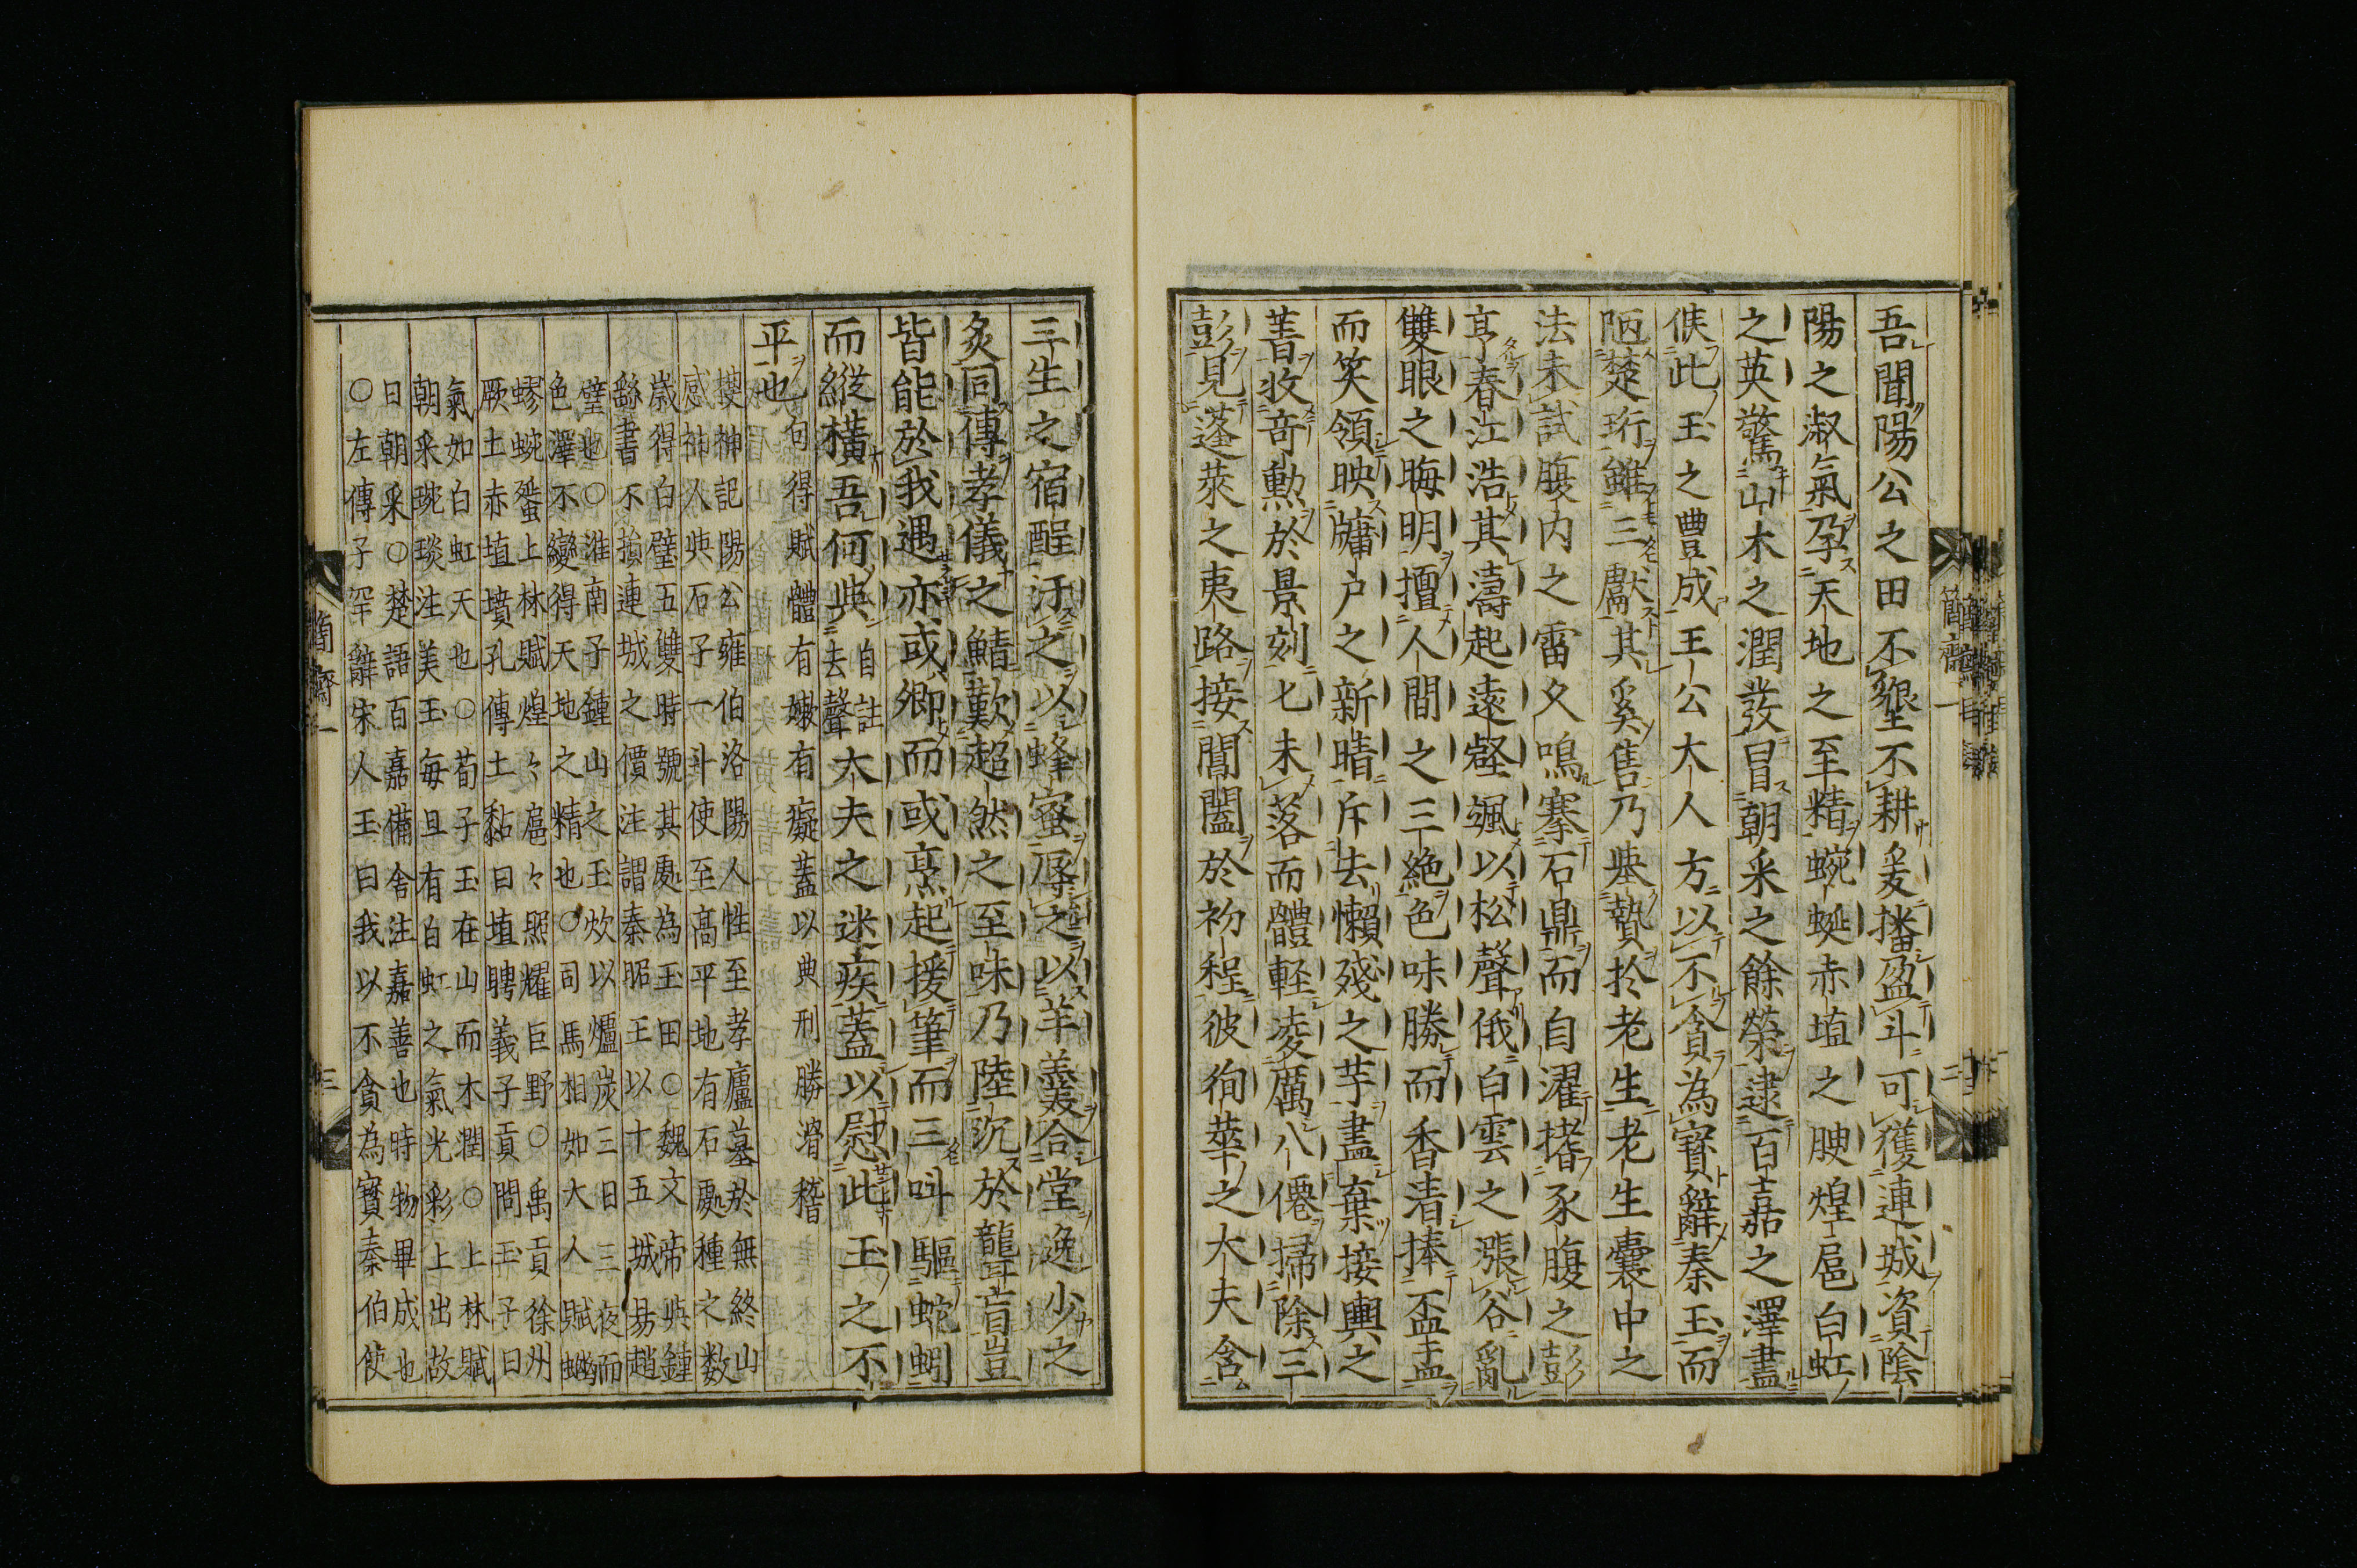 吾聞陽公之田不墾不耕爰播盈斗可獲連城資陰
陽之淑氣孕天地之至精蜿蜒赤埴之腴煌扈白虹
之英驚山木之潤發冒朝采之餘榮逮百嘉之澤盡
候此玉之豊成王公大人方以不貪為寶辭秦玉而
陋楚珩雖三獻其奚售乃堪贄於老生老生囊中之
法未試腹內之雷久鳴搴石鼎而自濯揩豕腹之彭
亨春江浩其濤起遠壑颯以松聲俄白雲之漲谷亂
雙眼之晦明擅人間之三絶色味勝而香清捧盃盂
而笑領映牖戶之新晴斥去懶殘之芋盡棄接輿之
菁收奇勲於景刻七未落而體軽凌厲八僊掃除三
彭見蓬萊之夷路接閶闔於初程彼徇華之大夫含
簡齋一
二
三生之宿酲汙之以蜂蜜辱之以羊羹合堂逸少之
炙同傳孝儀之鯖歎超然之至味乃陸沉於聾盲豈
皆能於我遇亦或卿而或烹起援筆而三叫驅蛇蚓
而縱橫吾何與自註去聲大夫之迷疾蓋以慰此玉之不
平也句得賦體有嫩有癡蓋以典刑勝滑稽
搜神記陽公雍伯洛陽人性至孝廬墓於無終山
感神人與石子一斗使至高平地有石處種之數
歲得白璧五雙時號其處為玉田○魏文帝與鍾
繇書不損連城之價注謂秦昭王以十五城易趙
璧也○淮南子鍾山之玉炊以爐炭三日三夜而
色澤不變得天地之精也○司馬相如大人賦蚴
蟉蜿蜑上林賦煌々扈々照耀巨野○禹貢徐州
厥土赤埴墳孔傳土黏曰埴聘義子貢問玉子曰
氣如白虹天也○荀子玉在山而木潤○上林賦
朝采琬琰注美玉每旦有白虹之氣光彩上出故
曰朝采○楚語百嘉備舍注嘉善也時物畢成也
○左傳子罕辭宋人玉曰我以不貪為寶秦伯使
簡齋一
三